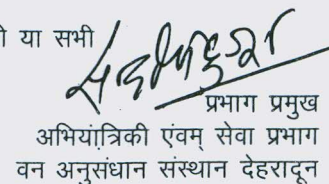 या सभी
प्रभाग प्रमुख
अभियांत्रिकी एंवम् सेवा प्रभाग
वन अनुसंधान संस्थान देहरादून